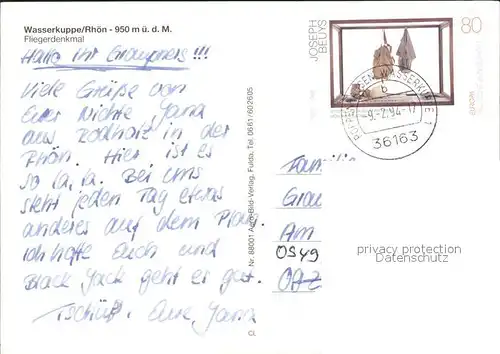 Wasserkuppe/Rhön - 950 m ü. d. M.
Fliegerdenkmal
Hallo Ihr Graupners!!!
Viele Grüße von
Eurer Nichte Yana
aus Rodholz in der
Rhön. Hier ist es
so la, la. Bei uns
steht jeden Tag etwas
anderes auf dem Plan.
Ich hoffe Euch und
Black Jack geht es gut.
Tschüß Eure Yana
Nr. 88001 Auto-Bild-Verlag, Fulda, Tel. 0661/602605
CL
JOSEPH
BEUYS
80
EUROPA
WASSERKUPPE
b
-9.-2.94-17
36163
Familie
Grau
Am
0549
privacy protection
Datenschutz